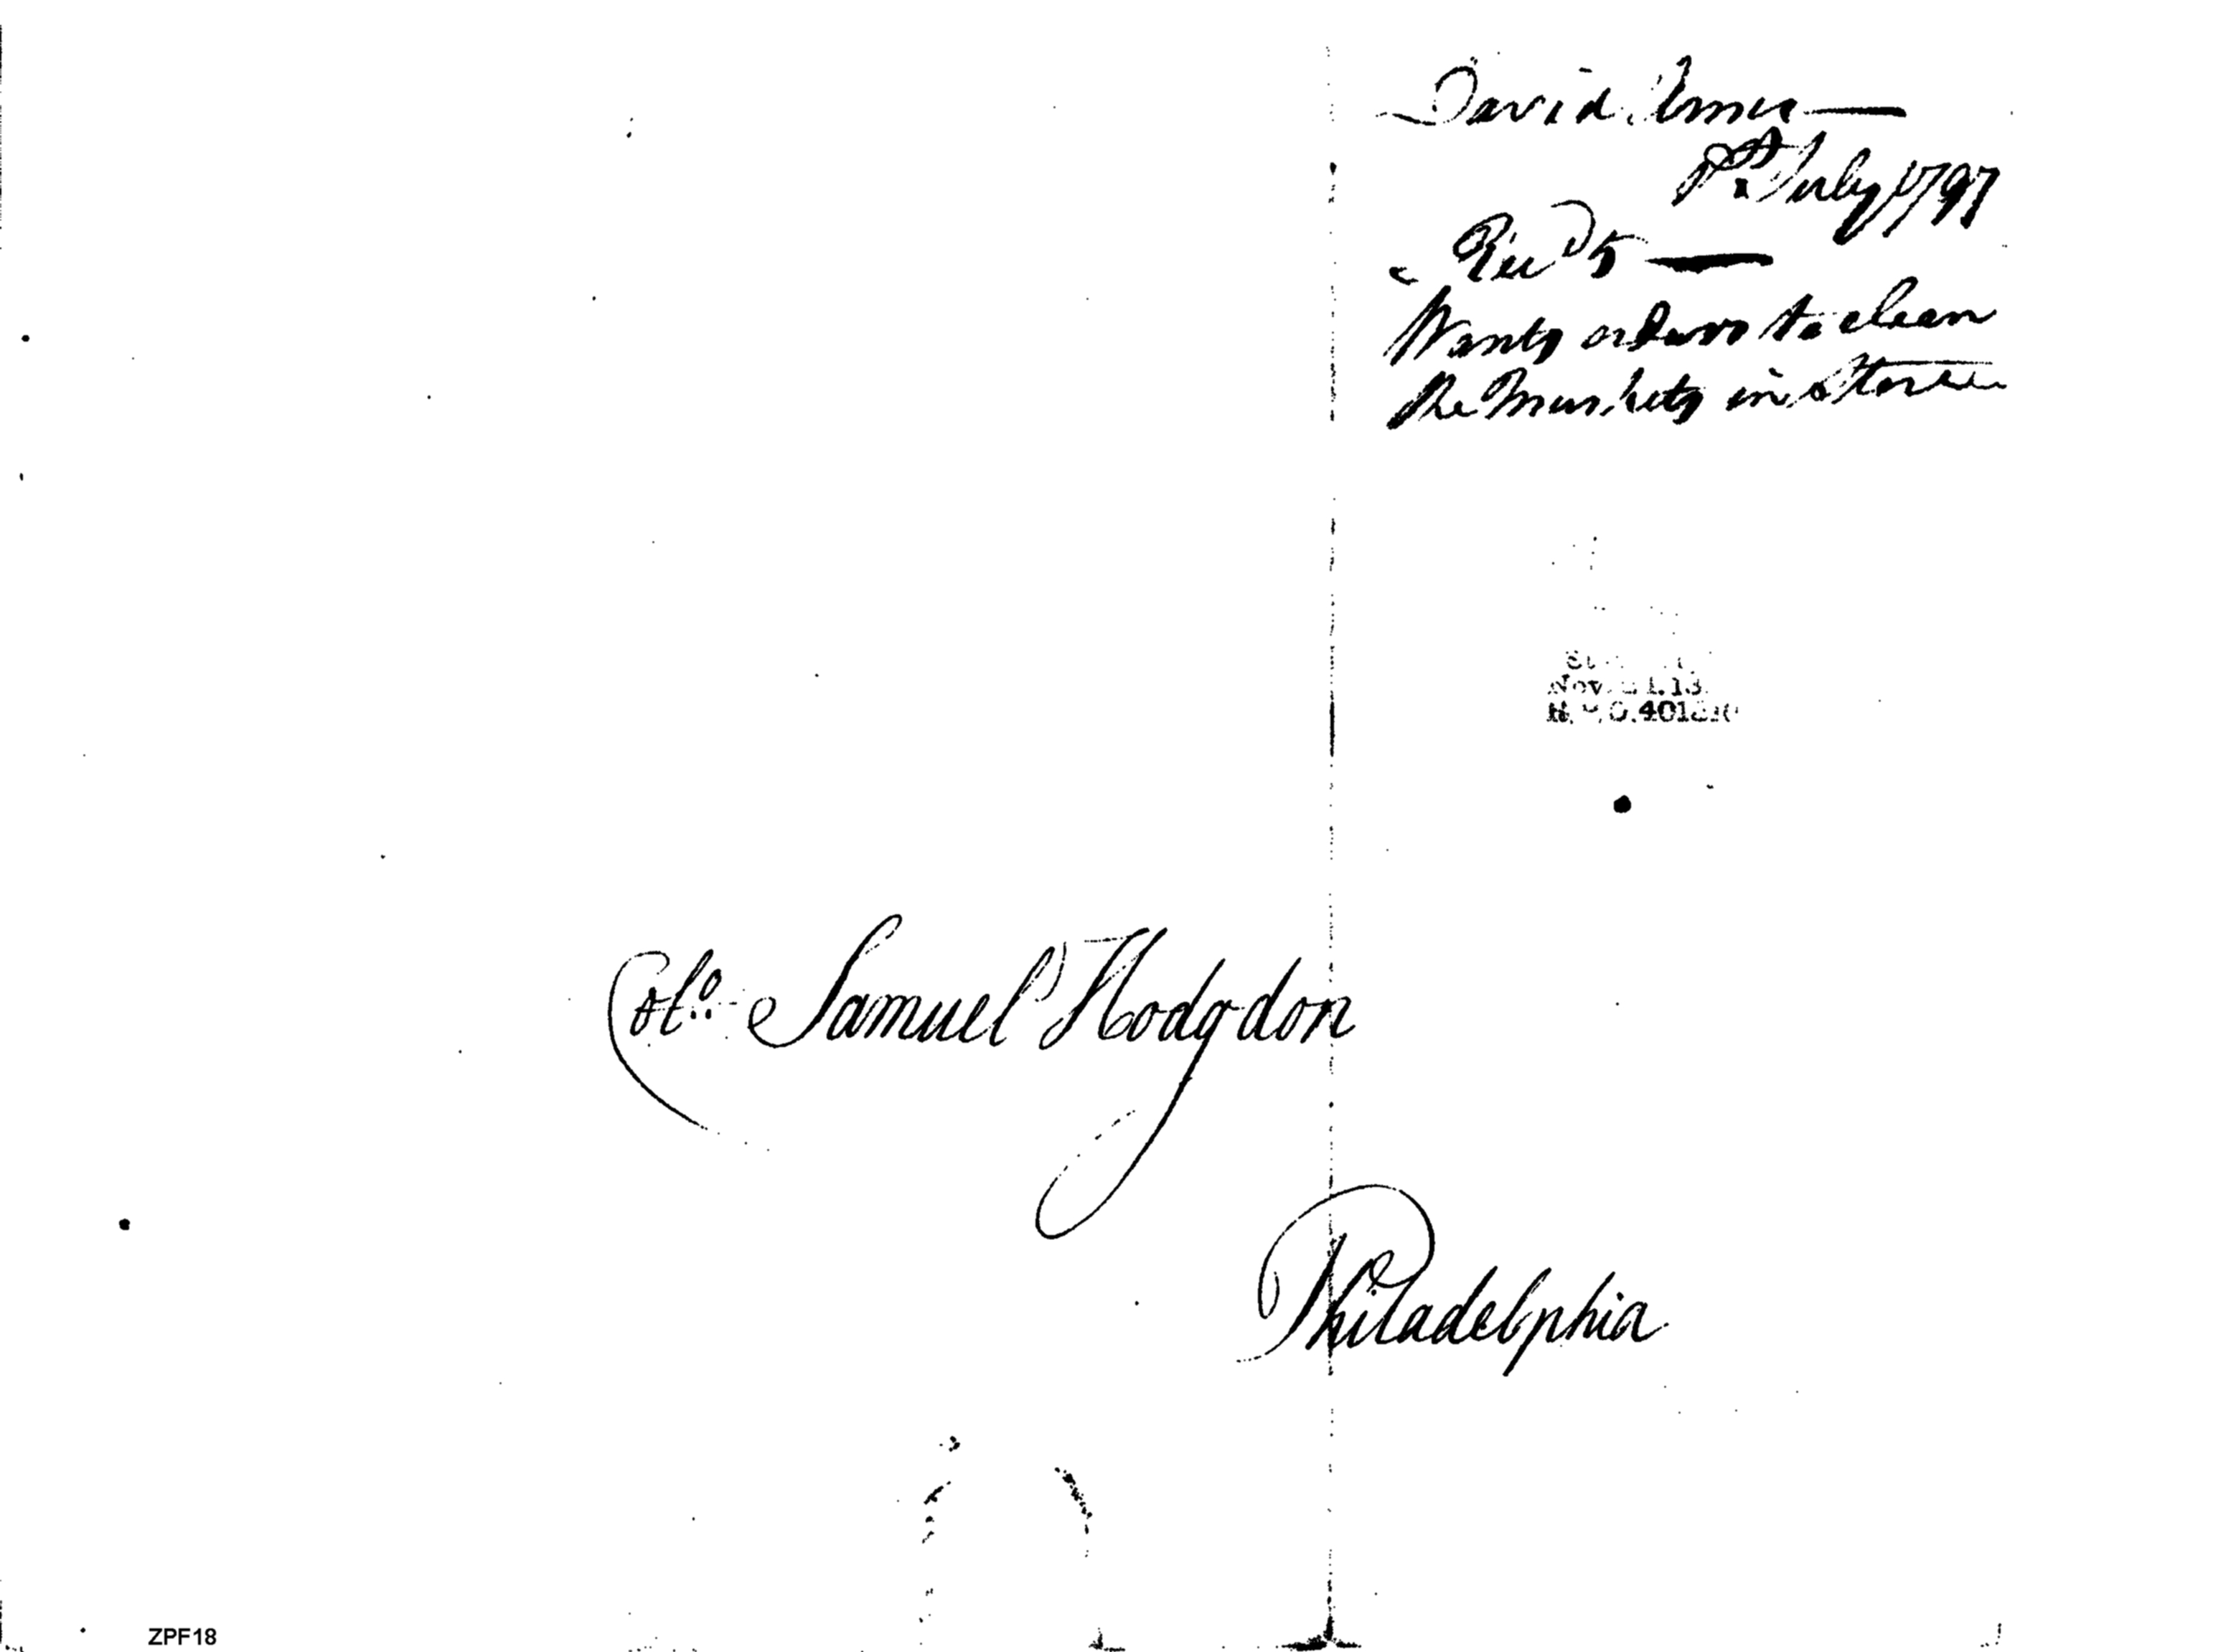 David
July 1797
Recd 5
Wants orders to clean
the Muskets in store
Nov.
Colo. Samuel Hodgdon
Philadelphia
ZPF18